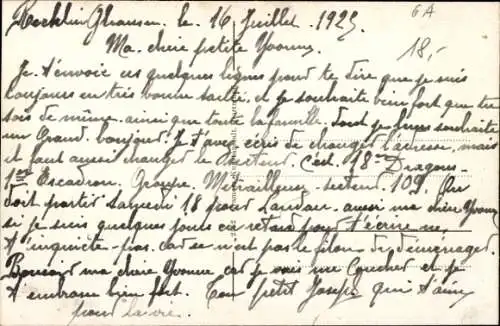 Recklinghausen. le. 16 Juillet. 1925
6A
18,-
Ma. chère petite Yvonne.
Je t'envoie ces quelques lignes pour te dire que je suis
toujours en très bonne santé. et je souhaite bien fort que tu
sois de même. ainsi que toute la famille. dont je leurs souhaite
un Grand. bonjour. Je t'avez écris de changer l'adresse, mais
il faut aussi changer le secteur. C'est. 18e Dragons.
1er Escadron. Groupe. Mitrailleuse. secteur. 109. On
doit partir Samedi 18 pour Landau. aussi ma chère Yvonne
si je suis quelques jours en retard pour t'écrire ne,
t'inquiète pas. car se n'est pas le filon de déménager.
Bonsoir ma chère Yvonne car je vais me Coucher et je
t'embrasse bien fort. Ton petit Joseph qui t'aime
pour la vie.